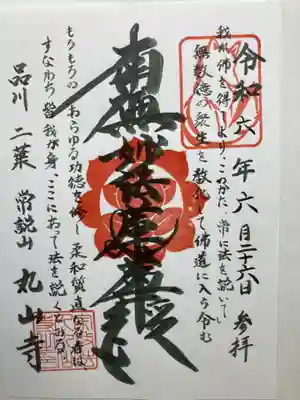 令和六年六月二十六日 参拝
我れ佛を得しより、このかた、常に法を説いて
無数億の衆生を教化して佛道に入ら令む
南無妙法蓮華経
もろもろの あらゆる功徳を修し 柔和質直なる者は
すなわち皆 我が身、ここにあって法を説くとみる
品川 二葉 常説山 丸山寺